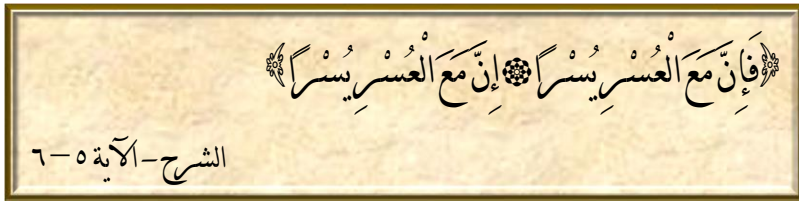 ﴿فَإِنَّ مَعَ الْعُسْرِ يُسْرًا ۞ إِنَّ مَعَ الْعُسْرِ يُسْرًا﴾
الشرح-الآية ٥-٦